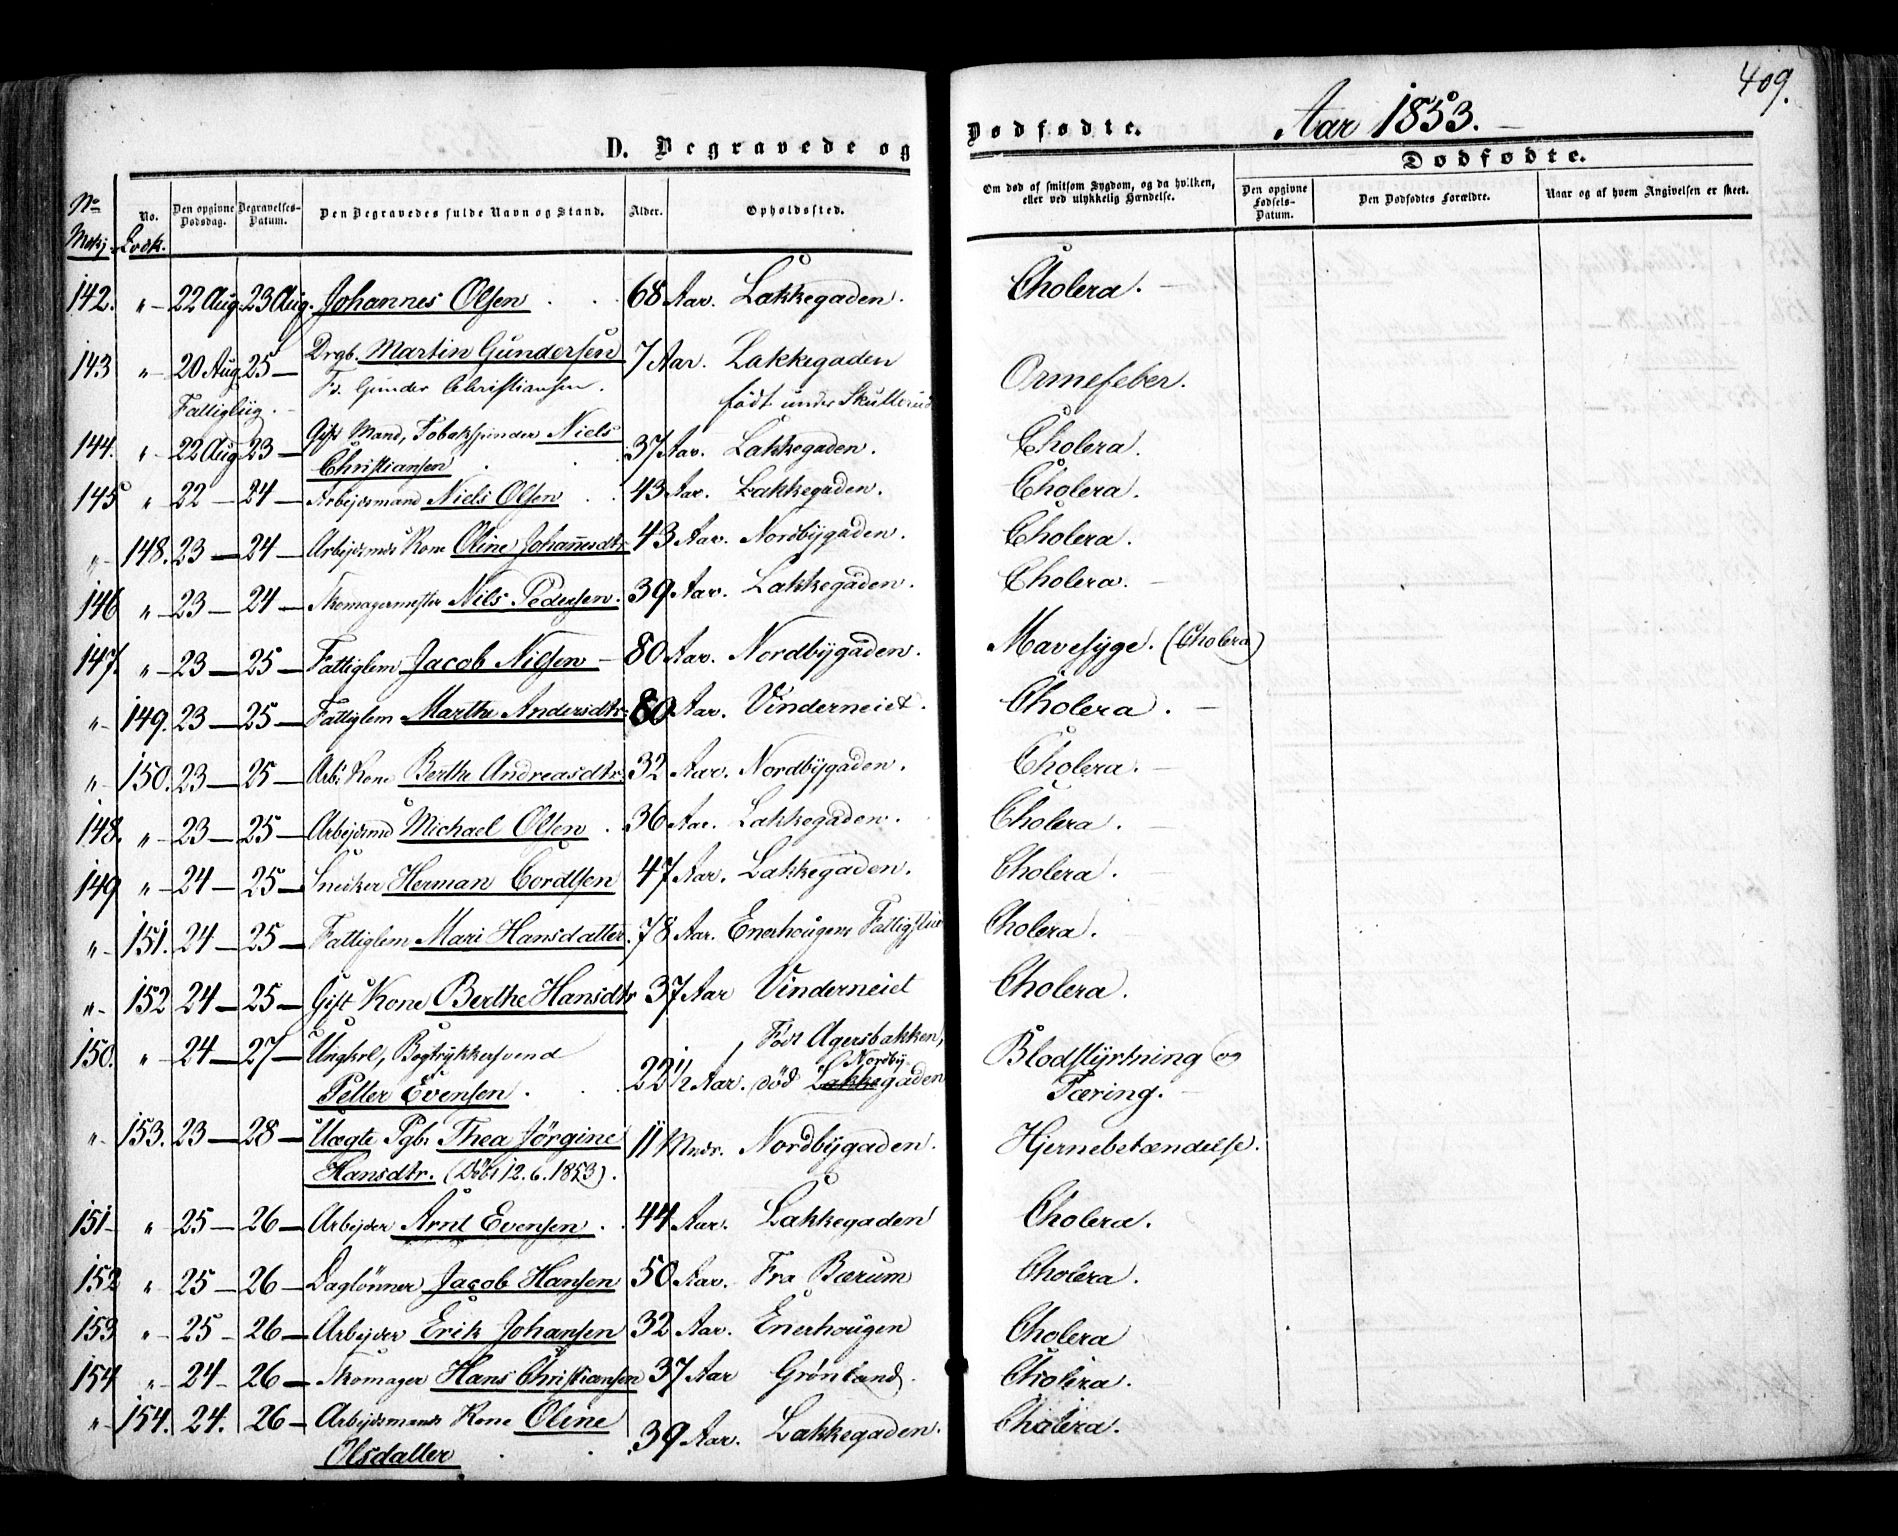 409.
Aar 1853.
D. Begravede og Dødfødte.
Dødfødte.
No. Mskj. No. Qvdk. Den opgivne Dødsdag. Begravelses-Datum. Den Begravedes fulde Navn og Stand. Alder. Opholdssted. Om død af smitsom Sygdom, og da hvilken, eller ved ulykkelig Hændelse. Den opgivne Fødsels-Datum. Den Dødfødtes Forældre. Naar og af hvem Angivelsen er skeet.
142. " 22 Aug. 23 Aug. Johannes Olsen 68 Aar. Lakkegaden. Cholera.
143 " 20 Aug 25 Drgb. Martin Gundersen 7 Aar. Lakkegaden Ormefeber.
F. Gunder Christiansen. født under Skullerud
Fattigliig.
144. " 22 Aug 23 Gift Mand, Tobakspinder Niels 37 Aar. Lakkegaden. Cholera.
Christiansen
145 " 22 24 Arbejdsmand Niels Olsen 43 Aar. Lakkegaden. Cholera.
" 148. 23 24 Arbejdsmds Kone Oline Johannesdtr 43 Aar. Nordbygaden. Cholera.
146 " 23 24 Skomagermester Nils Pedersen. 39 Aar. Lakkegaden. Cholera.
147. " 23 25 Fattiglem Jacob Nilsen 80 Aar. Nordbygaden. Mavesyge. (Cholera)
" 149. 23 25 Fattiglem Marthe Andersdtr. 80 Aar. Vinderneiet. Cholera.
" 150. 23 25 Arb: Kone Berthe Andreasdtr. 32 Aar. Nordbygaden. Cholera.
148. " 23 25 Arbejdsmd Michael Olsen. 36 Aar. Lakkegaden. Cholera.
149 " 24 25 Snedker Herman Cordtsen 47 Aar. Lakkegaden. Cholera.
" 151. 24 25 Fattiglem Mari Hansdatter. 78 Aar. Enerhougens Cholera.
" 152 24 25 Gift Kone Berthe Hansdtr 37 Aar Vinderneiet Cholera.
150. " 24 27 Ungkrl, Bogtrykkersvend Født Agersbakken, Blodstyrtning og
Petter Evensen. 22 1/2 Aar. død Lakkegaden Nordby Tæring.
" 153. 23 28 Uægte Pgb. Thea Jørgine 11 Mndr. Nordbygaden. Hjernebetændelse.
Hansdtr. (Døbt 12.6.1853).
151 " 25 26 Arbejder Arnt Evensen. 44 Aar. Lakkegaden Cholera.
152 " 25 26 Daglønner Jacob Hansen 50 Aar. Fra Bærum Cholera.
153 " 25 26 Arbejder Erik Johansen 32 Aar. Enerhougen Cholera
154 " 24 26 Skomager Hans Christiansen 37 Aar Grønland. Cholera.
" 154. 24. 26 Arbejdsmands Kone Oline 39 Aar. Lakkegaden. Cholera.
Olsdatter